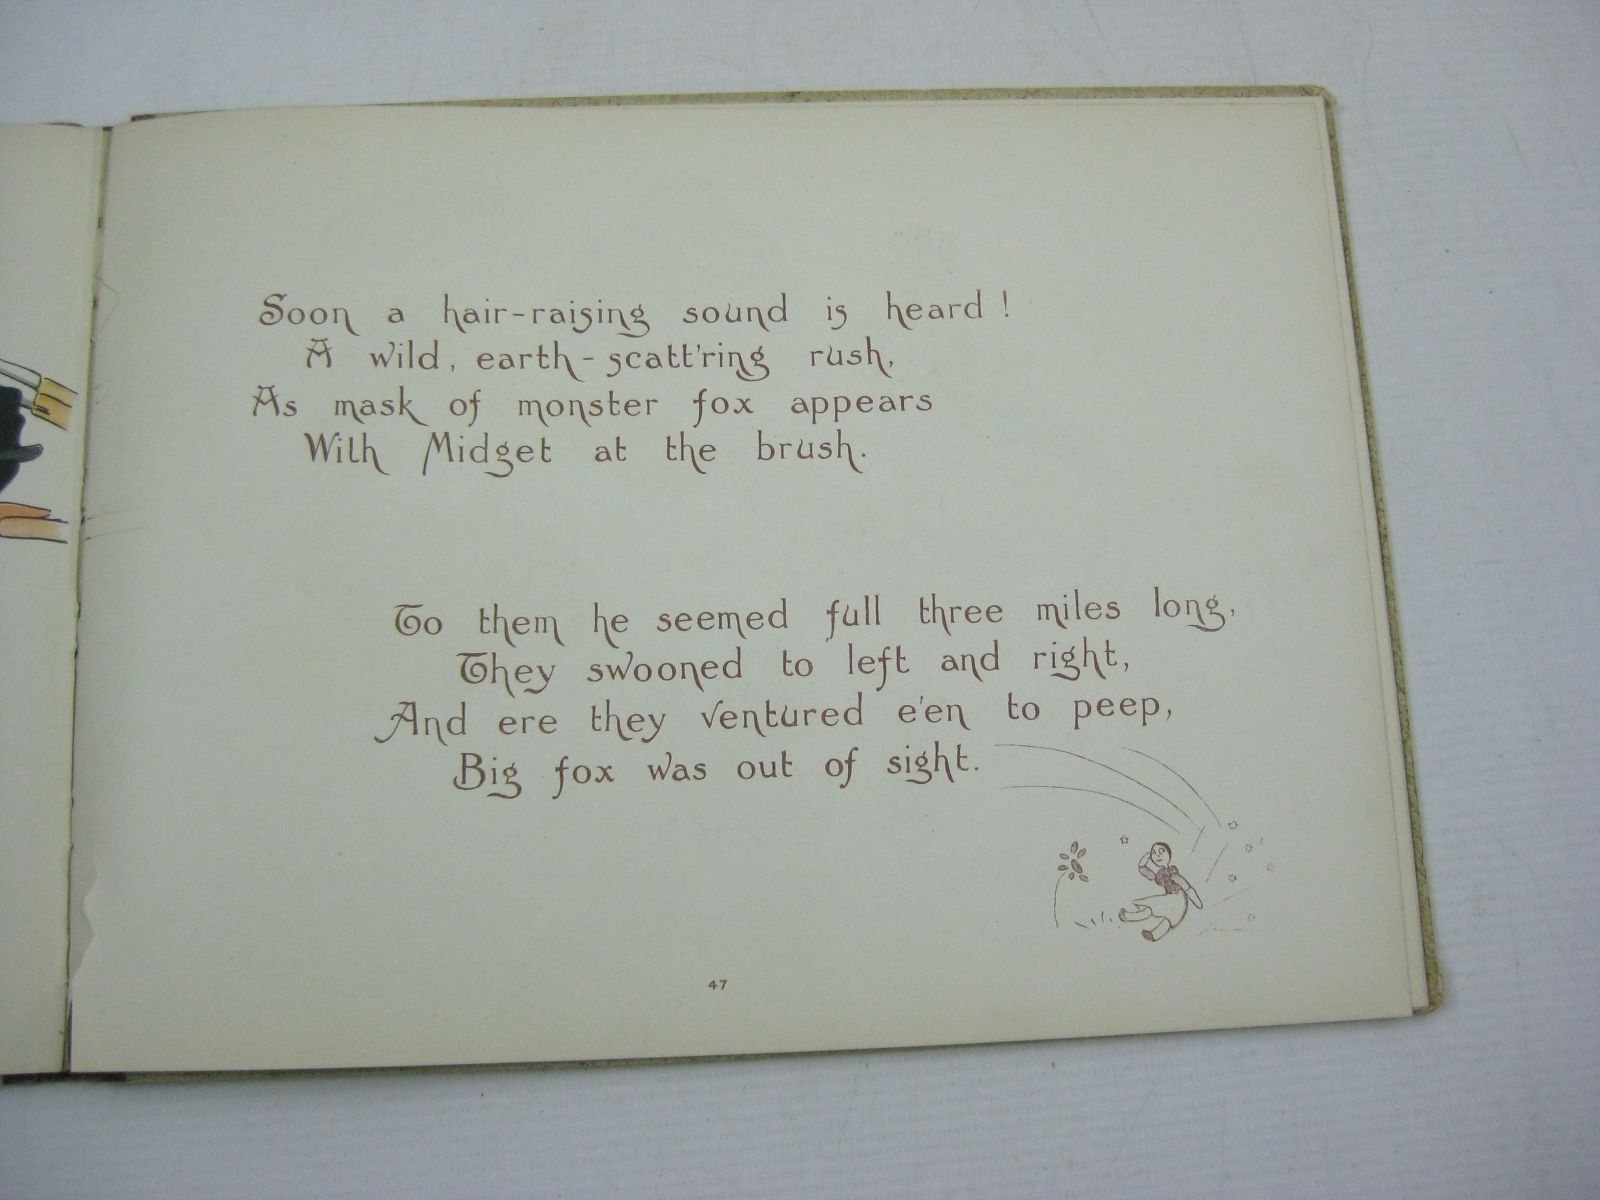 Soon a hair-raising sound is heard!
A wild, earth-scatt'ring rush,
As mask of monster fox appears
With Midget at the brush.
To them he seemed full three miles long,
They swooned to left and right,
And ere they ventured e'en to peep,
Big fox was out of sight.
47